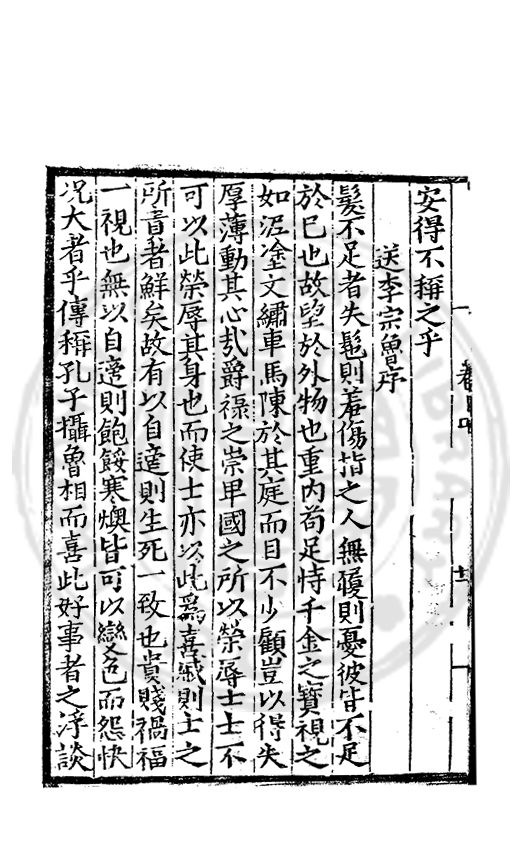 安得不稱之乎
送李宗魯序
髮不足者失髢則羞傷指之人無䕶則憂彼皆不足
於已也故望於外物也重内茍足恃千金之寳視之
如泥塗文繡車馬陳於其庭而目不少顧豈以得失
厚薄動其心㢤爵祿之崇卑國之所以榮辱士士不
可以此榮辱其身也而使士亦以此爲喜慼則士之
所音者鮮矣故有以自適則生死一致也貴賤禍福
一視也無以自適則飽餒寒燠皆可以變色而怨快
况大者乎傳稱孔子攝魯相而喜此好事者之浮談